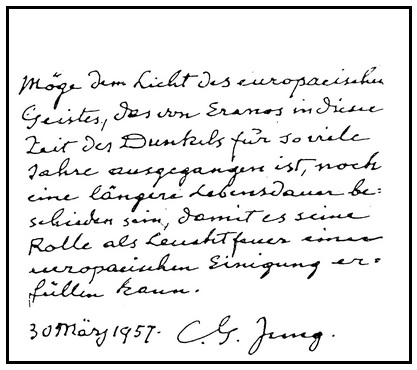 Möge dem Licht des europaeischen
Geistes, das von Eranos in dieser
Zeit des Dunkels für so viele
Jahre ausgegangen ist, noch
eine längere Lebensdauer be-
schieden sein, damit es seine
Rolle als Leuchtfeuer einer
europaeischen Einigung er-
füllen kann.
30 März 1957. C. G. Jung.